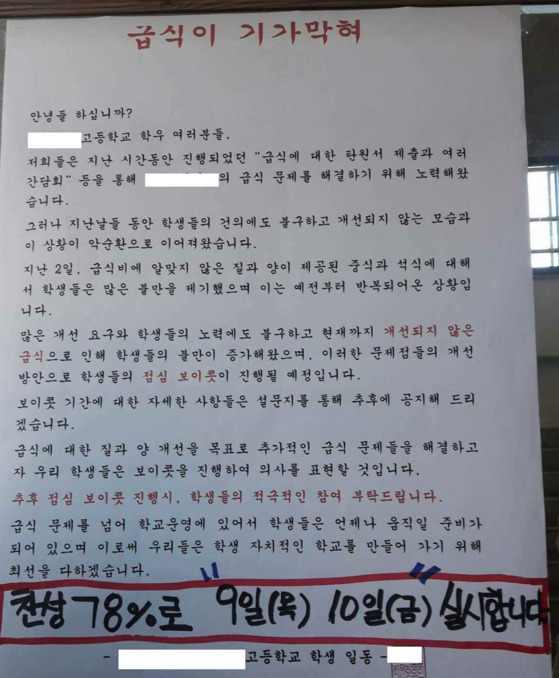 급식이 기가막혀
안녕들 하십니까?
고등학교 학우 여러분들.
저희들은 지난 시간동안 진행되었던 "급식에 대한 탄원서 제출과 여러
간담회" 등을 통해 의 급식 문제를 해결하기 위해 노력해왔
습니다.
그러나 지난날들 동안 학생들의 건의에도 불구하고 개선되지 않는 모습과
이 상황이 악순환으로 이어져왔습니다.
지난 2일, 급식비에 알맞지 않은 질과 양이 제공된 중식과 석식에 대해
서 학생들은 많은 불만을 제기했으며 이는 예전부터 반복되어온 상황입
니다.
많은 개선 요구와 학생들의 노력에도 불구하고 현재까지 개선되지 않은
급식으로 인해 학생들의 불만이 증가해왔으며, 이러한 문제점들의 개선
방안으로 학생들의 점심 보이콧이 진행될 예정입니다.
보이콧 기간에 대한 자세한 사항들은 설문지를 통해 추후에 공지해 드리
겠습니다.
급식에 대한 질과 양 개선을 목표로 추가적인 급식 문제들을 해결하고
자 우리 학생들은 보이콧을 진행하여 의사를 표현할 것입니다.
추후 점심 보이콧 진행시, 학생들의 적극적인 참여 부탁드립니다.
급식 문제를 넘어 학교운영에 있어서 학생들은 언제나 움직일 준비가
되어 있으며 이로써 우리들은 학생 자치적인 학교를 만들어 가기 위해
최선을 다하겠습니다.
찬성 78%로 "9일(목) 10일(금)" 실시합니다
- 고등학교 학생 일동 -